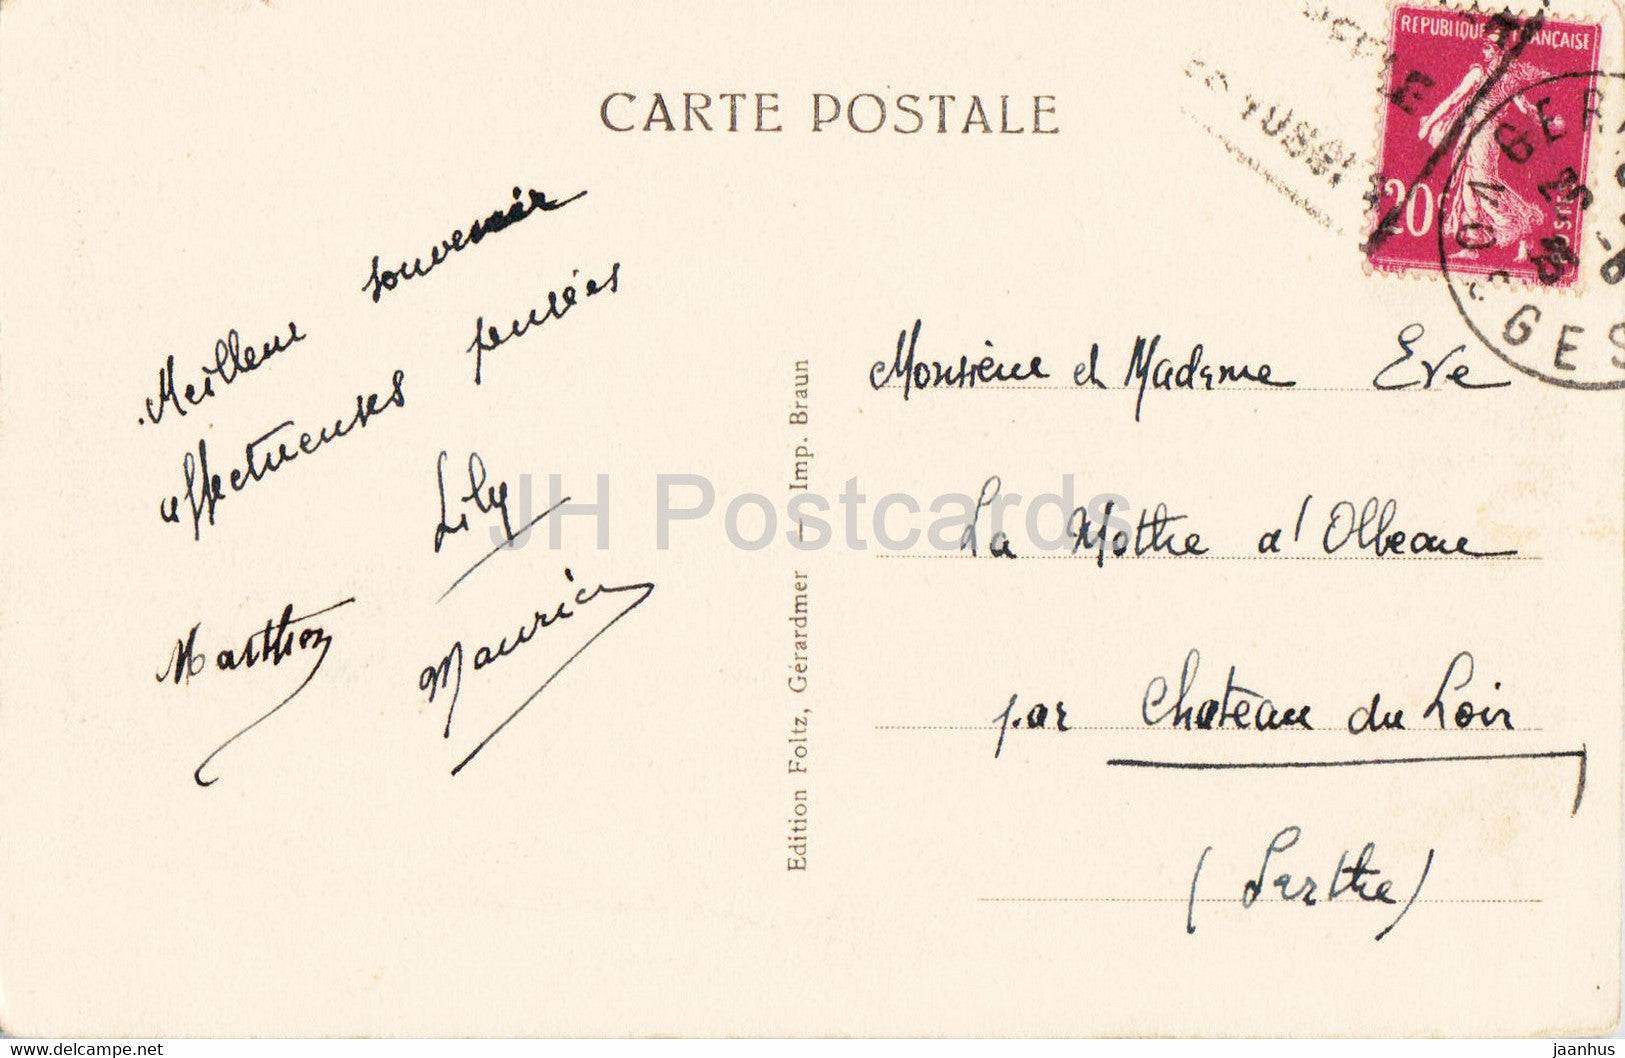 CARTE POSTALE
REPUBLIQUE FRANÇAISE
20c
GES
Meilleur souvenir
affectueuses pensées
Lily
Maurice
Edition Foltz, Gérardmer — Imp. Braun
Monsieur et Madame Eve
La Mothe d'Olbeau
par Château du Loir
(Sarthe)
JH Postcards
jaanhus
delcampe.net